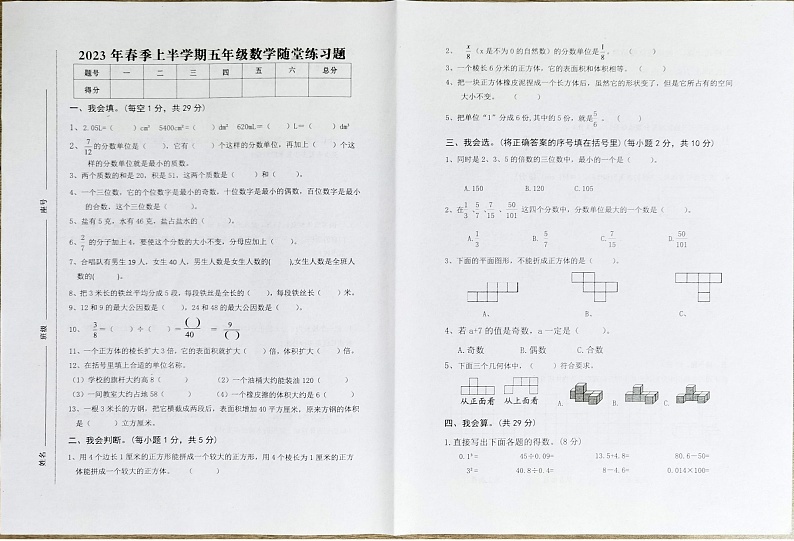 2023 年春季上半学期五年级数学随堂练习题
题号 一 二 三 四 五 六 总分
得分
一、我会填。(每空 1 分，共 29 分)
1、2.05L=（ ）cm³ 5400cm³=（ ）dm³ 620mL=（ ）L=（ ）dm³
2、7/12的分数单位是（ ），它有（ ）个这样的分数单位，再加上（ ）个这
样的分数单位就是最小的质数。
3、两个质数的和是 20，积是 51，这两个质数是（ ）和（ ）。
4、一个三位数，它的个位数字是最小的奇数，十位数字是最小的偶数，百位数字是最小
的合数，这个三位数是（ ）。
5、盐有 5 克，水有 46 克，盐占盐水的（ ）。
6、2/7 的分子加上 4，要使这个分数的大小不变，分母应加上（ ）。
7、合唱队有男生 19 人，女生 40 人，男生人数是女生人数的( ),女生人数是全班人
数的( )。
8、把 3 米长的铁丝平均分成 5 段，每段铁丝是全长的（ ），每段铁丝长（ ）米。
9、12 和 9 的最大公因数是（ ），24 和 48 的最大公因数是（ ）。
10、 3/8 =（ ）÷（ ）= ( )/40 = 9/( )
11、一个正方体的棱长扩大 3 倍，它的表面积就扩大（ ）倍，体积扩大（ ）倍。
12、在括号里填上合适的单位名称。
（1）学校的旗杆大约高 8（ ） （2）一个油桶大约能装油 120（ ）
（3）一间教室大约占地 58（ ） （4）一个橡皮擦的体积大约是 6（ ）
13、一根 3 米长的方钢，把它横截成两段后，表面积增加 40 平方厘米，原来方钢的体积
是（ ）立方厘米。
二、我会判断。(每小题 1 分，共 5 分)
1、用 4 个边长 1 厘米的正方形能拼成一个较大的正方形，用 4 个棱长为 1 厘米的正方
体能拼成一个较大的正方体。 （ ）
姓名
班级
座号
2、 x/8（x 是不为 0 的自然数）的分数单位是1/8。 （ ）
3、一个棱长 6 分米的正方体，它的表面积和体积相等。（ ）
4、把一块正方体橡皮泥捏成一个长方体后，虽然它的形状变了，但是它所占有的空间
大小不变。 （ ）
5、把单位“1”分成 6 份,其中的 5 份，就是5/6 。 （ ）
三、我会选。(将正确答案的序号填在括号里)(每小题 2 分，共 10 分)
1、同时是 2、3、5 的倍数的三位数中，最小的一个是（ ）。
A.150 B.120 C.105
2、在1/3、5/7、7/15、50/101 这四个分数中，分数单位最大的一个数是（ ）。
A.1/3 B.5/7 C.7/15 D.50/101
3、下面的平面图形，不能折成正方体的是（ ）。
A、 B、 C、
4、若 a+7 的值是奇数，a 一定是（ ）。
A.奇数 B.偶数 C.合数
5、下面三个几何体中，（ ）符合要求。
从正面看 从上面看 A. B. C.
四、我会算。(共 29 分)
1.直接写出下面各题的得数。(8 分)
0.1³= 45÷0.09= 13.5+4.8= 80.6-50=
3²= 40.8÷0.4= 8-4.6= 0.014×100=